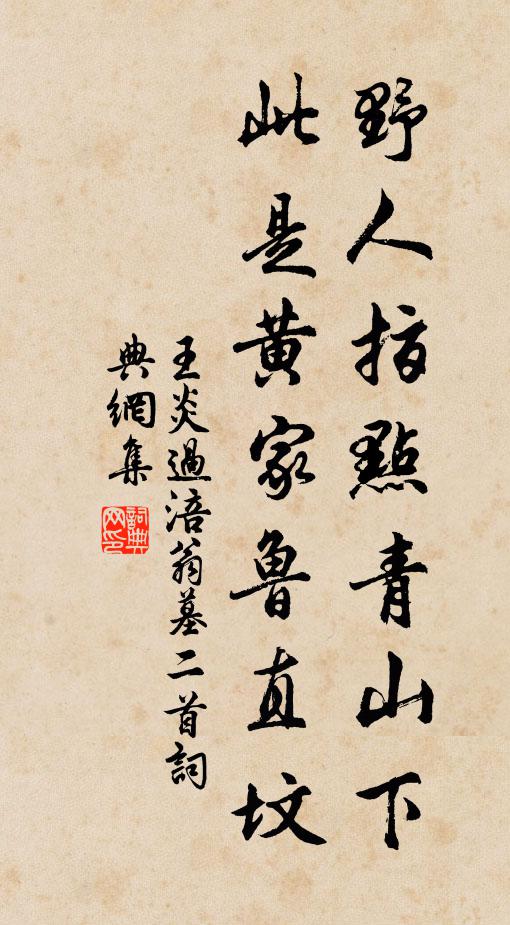 野人指點青山下
此是黄家魯直墳
王炎過涪翁墓二首詞
典網集
詞典網印